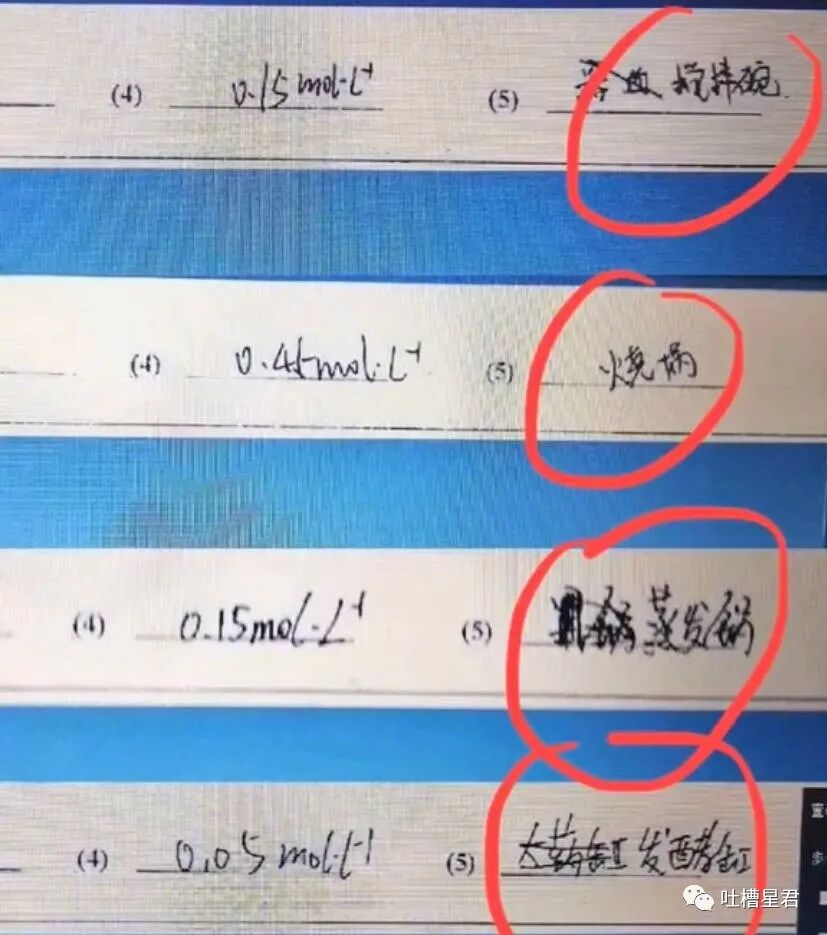 (4) 0.15mol·L⁻¹ (5) 搅拌碗
(4) 0.45mol·L⁻¹ (5) 烧埚
(4) 0.15mol·L⁻¹ (5) 蒸发锅
(4) 0.05mol·L⁻¹ (5) 大药缸发酵缸
吐槽星君